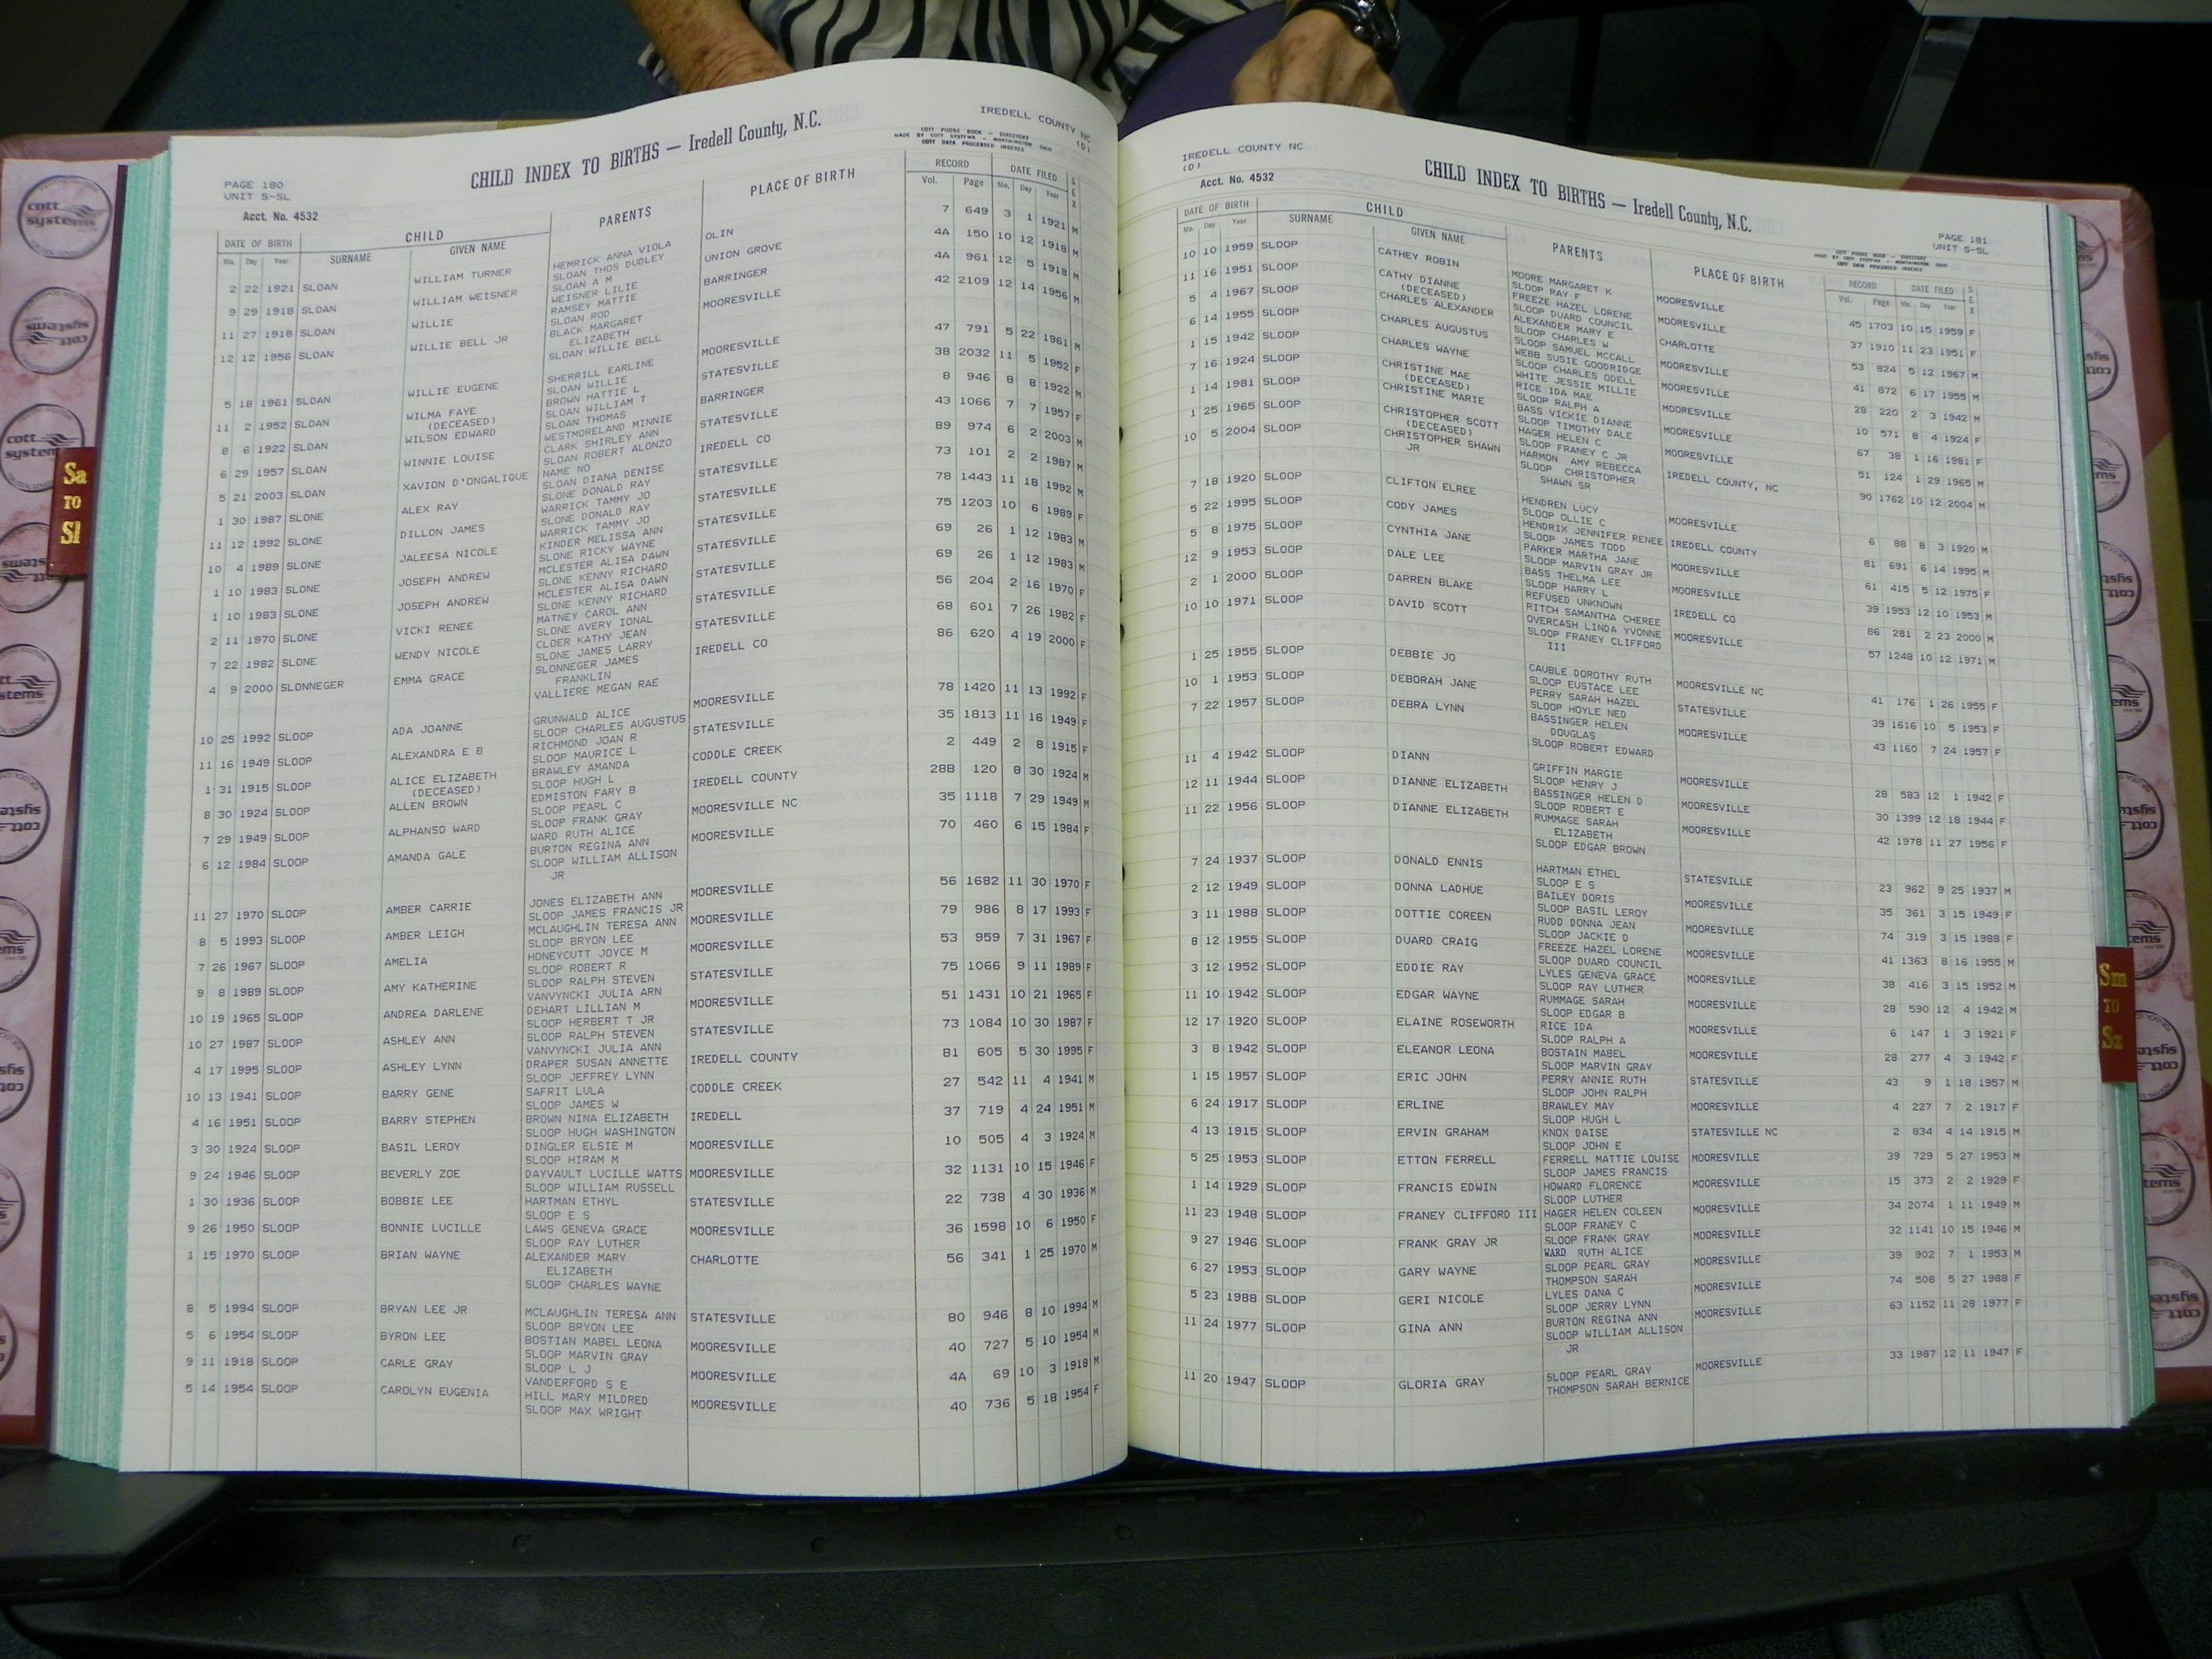 IREDELL COUNTY NC
(D)
PAGE 180
UNIT S-SL
CHILD INDEX TO BIRTHS — Iredell County, N.C.
COTT PHONE BOOK - DIRECTORY
MADE BY COTT SYSTEMS - WORTHINGTON OHIO
COTT DATA PROCESSED INDEXES
Acct. No. 4532
DATE OF BIRTH CHILD PARENTS PLACE OF BIRTH RECORD DATE FILED SEX
Mo. Day Year SURNAME GIVEN NAME Vol. Page Mo. Day Year
2 22 1921 SLOAN WILLIAM TURNER HEMRICK ANNA VIOLA OLIN 7 649 3 1 1921 M
SLOAN THOS DUDLEY
9 29 1918 SLOAN WILLIAM WEISNER SLOAN A M UNION GROVE 4A 150 10 12 1918 M
WEISNER LILIE
11 27 1918 SLOAN WILLIE RAMSEY MATTIE BARRINGER 4A 961 12 5 1918 M
SLOAN ROD
12 12 1956 SLOAN WILLIE BELL JR BLACK MARGARET MOORESVILLE 42 2109 12 14 1956 M
ELIZABETH
SLOAN WILLIE BELL
5 18 1961 SLOAN WILLIE EUGENE SHERRILL EARLINE MOORESVILLE 47 791 5 22 1961 M
SLOAN WILLIE
11 2 1952 SLOAN WILMA FAYE BROWN HATTIE L STATESVILLE 38 2032 11 5 1952 F
(DECEASED) SLOAN WILLIAM T
8 6 1922 SLOAN WILSON EDWARD SLOAN THOMAS BARRINGER 8 946 8 8 1922 M
WESTMORELAND MINNIE
6 29 1957 SLOAN WINNIE LOUISE CLARK SHIRLEY ANN STATESVILLE 43 1066 7 7 1957 F
SLOAN ROBERT ALONZO
5 21 2003 SLOAN XAVION D'ONGALIQUE NAME NO IREDELL CO 89 974 6 2 2003 M
SLOAN DIANA DENISE
1 30 1987 SLONE ALEX RAY SLONE DONALD RAY STATESVILLE 73 101 2 2 1987 M
WARRICK TAMMY JO
11 12 1992 SLONE DILLON JAMES SLONE DONALD RAY STATESVILLE 78 1443 11 18 1992 M
WARRICK TAMMY JO
10 4 1989 SLONE JALEESA NICOLE KINDER MELISSA ANN STATESVILLE 75 1203 10 6 1989 F
SLONE RICKY WAYNE
1 10 1983 SLONE JOSEPH ANDREW MCLESTER ALISA DAWN STATESVILLE 69 26 1 12 1983 M
SLONE KENNY RICHARD
1 10 1983 SLONE JOSEPH ANDREW MCLESTER ALISA DAWN STATESVILLE 69 26 1 12 1983 M
SLONE KENNY RICHARD
2 11 1970 SLONE VICKI RENEE MATNEY CAROL ANN STATESVILLE 56 204 2 16 1970 F
SLONE AVERY IONAL
7 22 1982 SLONE WENDY NICOLE CLOER KATHY JEAN STATESVILLE 68 601 7 26 1982 F
SLONE JAMES LARRY
4 9 2000 SLONNEGER EMMA GRACE SLONNEGER JAMES IREDELL CO 86 620 4 19 2000 F
FRANKLIN
VALLIERE MEGAN RAE
10 25 1992 SLOOP ADA JOANNE GRUNWALD ALICE MOORESVILLE 78 1420 11 13 1992 F
SLOOP CHARLES AUGUSTUS
11 16 1949 SLOOP ALEXANDRA E B RICHMOND JOAN R STATESVILLE 35 1813 11 16 1949 F
SLOOP MAURICE L
1 31 1915 SLOOP ALICE ELIZABETH BRAWLEY AMANDA CODDLE CREEK 2 449 2 8 1915 F
(DECEASED) SLOOP HUGH L
8 30 1924 SLOOP ALLEN BROWN EDMISTON FARY B IREDELL COUNTY 28B 120 8 30 1924 M
SLOOP PEARL C
7 29 1949 SLOOP ALPHANSO WARD SLOOP FRANK GRAY MOORESVILLE NC 35 1118 7 29 1949 M
WARD RUTH ALICE
6 12 1984 SLOOP AMANDA GALE BURTON REGINA ANN MOORESVILLE 70 460 6 15 1984 F
SLOOP WILLIAM ALLISON
JR
11 27 1970 SLOOP AMBER CARRIE JONES ELIZABETH ANN MOORESVILLE 56 1682 11 30 1970 F
SLOOP JAMES FRANCIS JR
8 5 1993 SLOOP AMBER LEIGH MCLAUGHLIN TERESA ANN MOORESVILLE 79 986 8 17 1993 F
SLOOP BRYON LEE
7 26 1967 SLOOP AMELIA HONEYCUTT JOYCE M MOORESVILLE 53 959 7 31 1967 F
SLOOP ROBERT R
9 8 1989 SLOOP AMY KATHERINE SLOOP RALPH STEVEN STATESVILLE 75 1066 9 11 1989 F
VANVYNCKI JULIA ARN
10 19 1965 SLOOP ANDREA DARLENE DEHART LILLIAN M MOORESVILLE 51 1431 10 21 1965 F
SLOOP HERBERT T JR
10 27 1987 SLOOP ASHLEY ANN SLOOP RALPH STEVEN STATESVILLE 73 1084 10 30 1987 F
VANVYNCKI JULIA ANN
4 17 1995 SLOOP ASHLEY LYNN DRAPER SUSAN ANNETTE IREDELL COUNTY 81 605 5 30 1995 F
SLOOP JEFFREY LYNN
10 13 1941 SLOOP BARRY GENE SAFRIT LULA CODDLE CREEK 27 542 11 4 1941 M
SLOOP JAMES W
4 16 1951 SLOOP BARRY STEPHEN BROWN NINA ELIZABETH IREDELL 37 719 4 24 1951 M
SLOOP HUGH WASHINGTON
3 30 1924 SLOOP BASIL LEROY DINGLER ELSIE M MOORESVILLE 10 505 4 3 1924 M
SLOOP HIRAM M
9 24 1946 SLOOP BEVERLY ZOE DAYVAULT LUCILLE WATTS MOORESVILLE 32 1131 10 15 1946 F
SLOOP WILLIAM RUSSELL
1 30 1936 SLOOP BOBBIE LEE HARTMAN ETHYL STATESVILLE 22 738 4 30 1936 M
SLOOP E S
9 26 1950 SLOOP BONNIE LUCILLE LAWS GENEVA GRACE MOORESVILLE 36 1598 10 6 1950 F
SLOOP RAY LUTHER
1 15 1970 SLOOP BRIAN WAYNE ALEXANDER MARY CHARLOTTE 56 341 1 25 1970 M
ELIZABETH
SLOOP CHARLES WAYNE
8 5 1994 SLOOP BRYAN LEE JR MCLAUGHLIN TERESA ANN STATESVILLE 80 946 8 10 1994 M
SLOOP BRYON LEE
5 6 1954 SLOOP BYRON LEE BOSTIAN MABEL LEONA MOORESVILLE 40 727 5 10 1954 M
SLOOP MARVIN GRAY
9 11 1918 SLOOP CARLE GRAY SLOOP L J MOORESVILLE 4A 69 10 3 1918 M
VANDERFORD S E
5 14 1954 SLOOP CAROLYN EUGENIA HILL MARY MILDRED MOORESVILLE 40 736 5 18 1954 F
SLOOP MAX WRIGHT
IREDELL COUNTY NC
(D)
Acct. No. 4532
CHILD INDEX TO BIRTHS — Iredell County, N.C.
PAGE 181
UNIT S-SL
COTT PHONE BOOK - DIRECTORY
MADE BY COTT SYSTEMS - WORTHINGTON OHIO
COTT DATA PROCESSED INDEXES
DATE OF BIRTH CHILD PARENTS PLACE OF BIRTH RECORD DATE FILED SEX
Mo. Day Year SURNAME GIVEN NAME Vol. Page Mo. Day Year
10 10 1959 SLOOP CATHEY ROBIN MOORE MARGARET K MOORESVILLE 45 1703 10 15 1959 F
SLOOP RAY F
11 16 1951 SLOOP CATHY DIANNE FREEZE HAZEL LORENE MOORESVILLE 37 1910 11 23 1951 F
(DECEASED) SLOOP DUARD COUNCIL
5 4 1967 SLOOP CHARLES ALEXANDER ALEXANDER MARY E CHARLOTTE 53 824 5 12 1967 M
SLOOP CHARLES W
6 14 1955 SLOOP CHARLES AUGUSTUS SLOOP SAMUEL MCCALL MOORESVILLE 41 872 6 17 1955 M
WEBB SUSIE GOODRIDGE
1 15 1942 SLOOP CHARLES WAYNE SLOOP CHARLES ODELL MOORESVILLE 28 220 2 3 1942 M
WHITE JESSIE MILLIE
7 16 1924 SLOOP CHRISTINE MAE RICE IDA MAE MOORESVILLE 10 571 8 4 1924 F
(DECEASED) SLOOP RALPH A
1 14 1981 SLOOP CHRISTINE MARIE BASS VICKIE DIANNE MOORESVILLE 67 38 1 16 1981 F
SLOOP TIMOTHY DALE
1 25 1965 SLOOP CHRISTOPHER SCOTT HAGER HELEN C MOORESVILLE 51 124 1 29 1965 M
(DECEASED) SLOOP FRANEY C JR
10 5 2004 SLOOP CHRISTOPHER SHAWN HARMON AMY REBECCA IREDELL COUNTY, NC 90 1762 10 12 2004 M
JR SLOOP CHRISTOPHER
SHAWN SR
7 18 1920 SLOOP CLIFTON ELREE HENDREN LUCY MOORESVILLE 6 88 8 3 1920 M
SLOOP OLLIE C
5 22 1995 SLOOP CODY JAMES HENDRIX JENNIFER RENEE IREDELL COUNTY 81 691 6 14 1995 M
SLOOP JAMES TODD
5 8 1975 SLOOP CYNTHIA JANE PARKER MARTHA JANE MOORESVILLE 61 415 5 12 1975 F
SLOOP MARVIN GRAY JR
12 9 1953 SLOOP DALE LEE BASS THELMA LEE MOORESVILLE 39 1953 12 10 1953 M
SLOOP HARRY L
2 1 2000 SLOOP DARREN BLAKE REFUSED UNKNOWN IREDELL CO 86 281 2 23 2000 M
RITCH SAMANTHA CHEREE
10 10 1971 SLOOP DAVID SCOTT OVERCASH LINDA YVONNE MOORESVILLE 57 1248 10 12 1971 M
SLOOP FRANEY CLIFFORD
III
1 25 1955 SLOOP DEBBIE JO CAUBLE DOROTHY RUTH MOORESVILLE NC 41 176 1 26 1955 F
SLOOP EUSTACE LEE
10 1 1953 SLOOP DEBORAH JANE PERRY SARAH HAZEL STATESVILLE 39 1616 10 5 1953 F
SLOOP HOYLE NED
7 22 1957 SLOOP DEBRA LYNN BASSINGER HELEN MOORESVILLE 43 1160 7 24 1957 F
DOUGLAS
SLOOP ROBERT EDWARD
11 4 1942 SLOOP DIANN GRIFFIN MARGIE MOORESVILLE 28 583 12 1 1942 F
SLOOP HENRY J
12 11 1944 SLOOP DIANNE ELIZABETH BASSINGER HELEN D MOORESVILLE 30 1399 12 18 1944 F
SLOOP ROBERT E
11 22 1956 SLOOP DIANNE ELIZABETH RUMMAGE SARAH MOORESVILLE 42 1978 11 27 1956 F
ELIZABETH
SLOOP EDGAR BROWN
7 24 1937 SLOOP DONALD ENNIS HARTMAN ETHEL STATESVILLE 23 962 9 25 1937 M
SLOOP E S
2 12 1949 SLOOP DONNA LADHUE BAILEY DORIS MOORESVILLE 35 361 3 15 1949 F
SLOOP BASIL LEROY
3 11 1988 SLOOP DOTTIE COREEN RUDD DONNA JEAN MOORESVILLE 74 319 3 15 1988 F
SLOOP JACKIE D
8 12 1955 SLOOP DUARD CRAIG FREEZE HAZEL LORENE MOORESVILLE 41 1363 8 16 1955 M
SLOOP DUARD COUNCIL
3 12 1952 SLOOP EDDIE RAY LYLES GENEVA GRACE MOORESVILLE 38 416 3 15 1952 M
SLOOP RAY LUTHER
11 10 1942 SLOOP EDGAR WAYNE RUMMAGE SARAH MOORESVILLE 28 590 12 4 1942 M
SLOOP EDGAR B
12 17 1920 SLOOP ELAINE ROSEWORTH RICE IDA MOORESVILLE 6 147 1 3 1921 F
SLOOP RALPH A
3 8 1942 SLOOP ELEANOR LEONA BOSTAIN MABEL MOORESVILLE 28 277 4 3 1942 F
SLOOP MARVIN GRAY
1 15 1957 SLOOP ERIC JOHN PERRY ANNIE RUTH STATESVILLE 43 9 1 18 1957 M
SLOOP JOHN RALPH
6 24 1917 SLOOP ERLINE BRAWLEY MAY MOORESVILLE 4 227 7 2 1917 F
SLOOP HUGH L
4 13 1915 SLOOP ERVIN GRAHAM KNOX DAISE STATESVILLE NC 2 834 4 14 1915 M
SLOOP JOHN E
5 25 1953 SLOOP ETTON FERRELL FERRELL MATTIE LOUISE MOORESVILLE 39 729 5 27 1953 M
SLOOP JAMES FRANCIS
1 14 1929 SLOOP FRANCIS EDWIN HOWARD FLORENCE MOORESVILLE 15 373 2 2 1929 F
SLOOP LUTHER
11 23 1948 SLOOP FRANEY CLIFFORD III HAGER HELEN COLEEN MOORESVILLE 34 2074 1 11 1949 M
SLOOP FRANEY C
9 27 1946 SLOOP FRANK GRAY JR SLOOP FRANK GRAY MOORESVILLE 32 1141 10 15 1946 M
WARD RUTH ALICE
6 27 1953 SLOOP GARY WAYNE SLOOP PEARL GRAY MOORESVILLE 39 902 7 1 1953 M
THOMPSON SARAH
5 23 1988 SLOOP GERI NICOLE LYLES DANA C MOORESVILLE 74 508 5 27 1988 F
SLOOP JERRY LYNN
11 24 1977 SLOOP GINA ANN BURTON REGINA ANN MOORESVILLE 63 1152 11 28 1977 F
SLOOP WILLIAM ALLISON
JR
11 20 1947 SLOOP GLORIA GRAY SLOOP PEARL GRAY MOORESVILLE 33 1987 12 11 1947 F
THOMPSON SARAH BERNICE
Sa
TO
Sl
Sm
TO
Sz
cott
systems